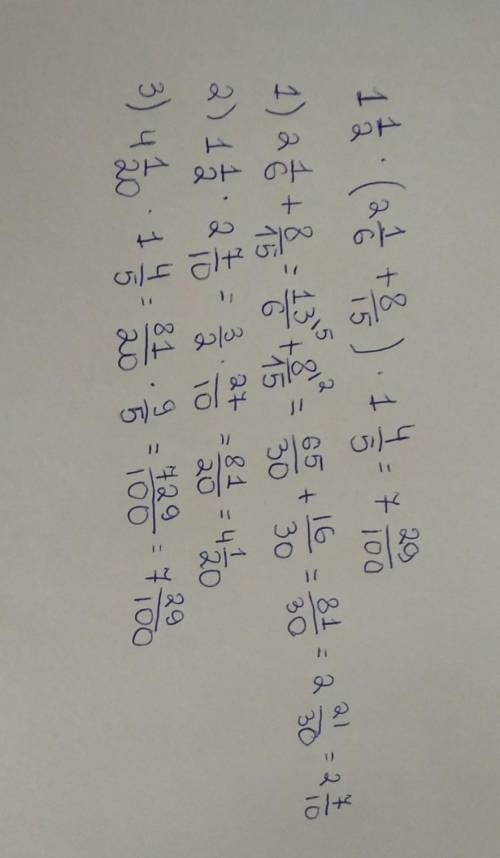 1 1/2 · (2 1/6 + 8/15) · 1 4/5 = 7 29/100
1) 2 1/6 + 8/15 = 13/6 ⁵ + 8/15 ² = 65/30 + 16/30 = 81/30 = 2 21/30 = 2 7/10
2) 1 1/2 · 2 7/10 = 3/2 · 27/10 = 81/20 = 4 1/20
3) 4 1/20 · 1 4/5 = 81/20 · 9/5 = 729/100 = 7 29/100